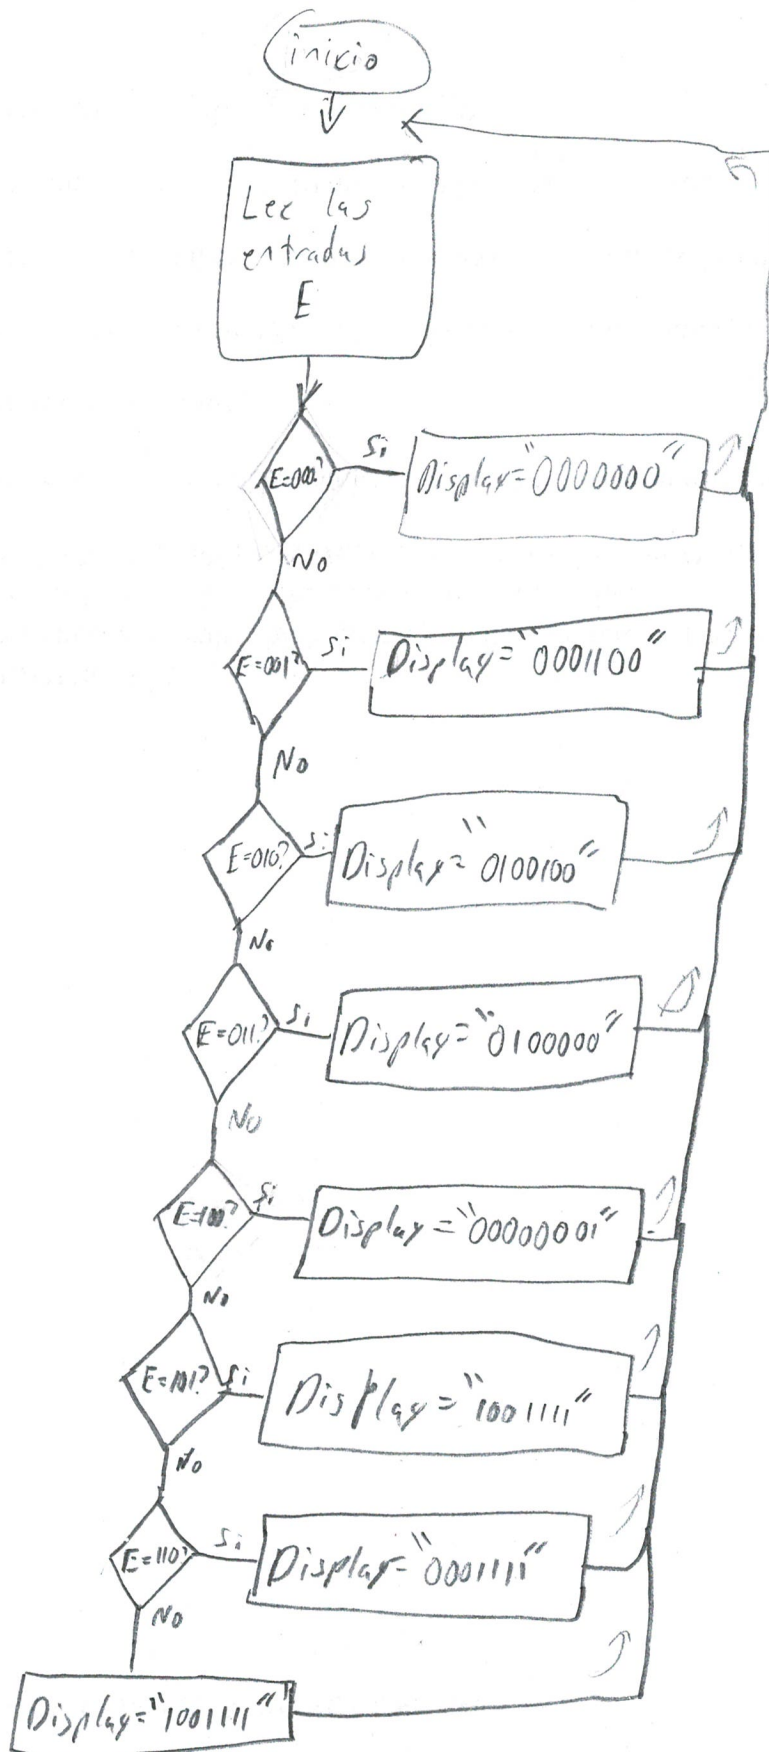 inicio
Lee las
entradas
E
E=000?
Si
Display="0000000"
No
E=001?
Si
Display="0001100"
No
E=010?
Si
Display="0100100"
No
E=011?
Si
Display="0100000"
No
E=100?
Si
Display="00000001"
No
E=101?
Si
Display="1001111"
No
E=110?
Si
Display="0001111"
No
Display="1001111"